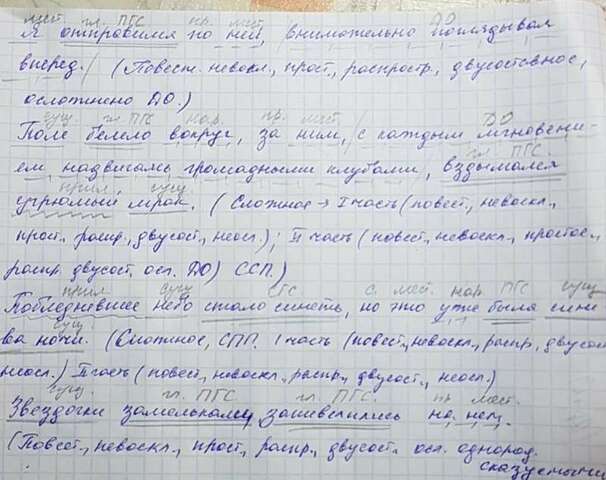 мест. гл. ПГС пр. мест. ДО
Я отправился по ней, внимательно поглядывая
вперед. (Повест. невоскл., прост., распростр., двусоставное,
осложнено ДО.)
сущ. гл. ПГС нар. пр. мест. ДО
Поле белело вокруг, за ним, с каждым мгновени-
гл. ПГС.
ем, надвигаясь громадными клубами, вздымался
прил. сущ.
угрюмый мрак. (Сложное → I часть (повест., невоскл.,
прост., распр., двусост., неосл.); II часть (повест., невоскл., простое.,
распр. двусост. осл. ДО) ССП.)
прил. сущ. СГС с. мест. нар. ПГС сущ.
Побледневшее небо стало синеть, но это уже была сине
сущ.
ва ночи. (Сложное, СПП. I часть (повест., невоскл., распр., двусост
неосл.) II часть (повест., невоскл., распр., двусост., неосл.)
сущ. гл. ПГС гл. ПГС. пр. мест.
Звездочки замелькали, зашевелились на нем.
(Повест., невоскл., прост., распр., двусост. осл. однород.
сказуемыми